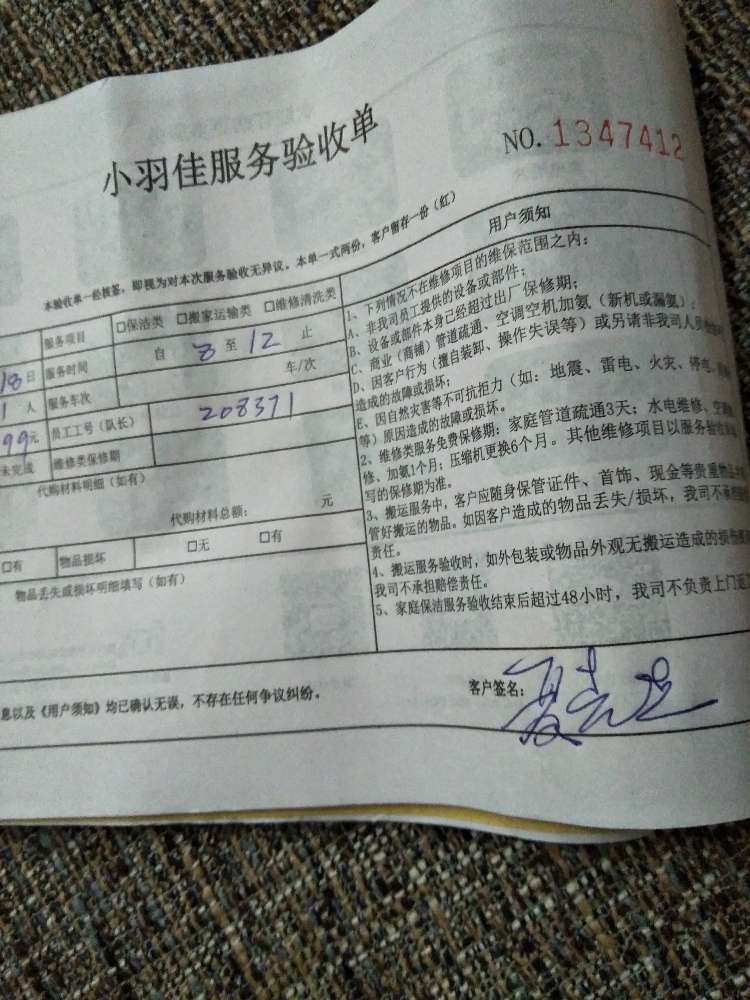 小羽佳服务验收单
NO. 1347412
本验收单一经核签，即视为对本次服务验收无异议。本单一式两份，客户留存一份（红）
服务项目 □保洁类 □搬家运输类 □维修清洗类
18日 服务时间 自 8 至 12 止
1人 服务车次 车/次
99元 员工工号（队长） 208371
未完成 维修类保修期
代购材料明细（如有）
代购材料总额： 元
□有 物品损坏 □无 □有
物品丢失或损坏明细填写（如有）
用户须知
1、下列情况不在维修项目的维保范围之内：
A、非我司员工提供的设备或部件；
B、设备或部件本身已经超过出厂保修期；
C、商业（商铺）管道疏通、空调空机加氨（新机或漏氨）；
D、因客户行为（擅自装卸、操作失误等）或另请非我司人员
造成的故障或损坏；
E、因自然灾害等不可抗拒力（如：地震、雷电、火灾、停电、
等）原因造成的故障或损坏。
2、维修类服务免费保修期：家庭管道疏通3天；水电维修、空调
修、加氨1个月；压缩机更换6个月。其他维修项目以服务验收单
写的保修期为准。
3、搬运服务中，客户应随身保管证件、首饰、现金等贵重物品
管好搬运的物品。如因客户造成的物品丢失/损坏，我司不承担
责任。
4、搬运服务验收时，如外包装或物品外观无搬运造成的损伤
我司不承担赔偿责任。
5、家庭保洁服务验收结束后超过48小时，我司不负责上门返
息以及《用户须知》均已确认无误，不存在任何争议纠纷。
客户签名：